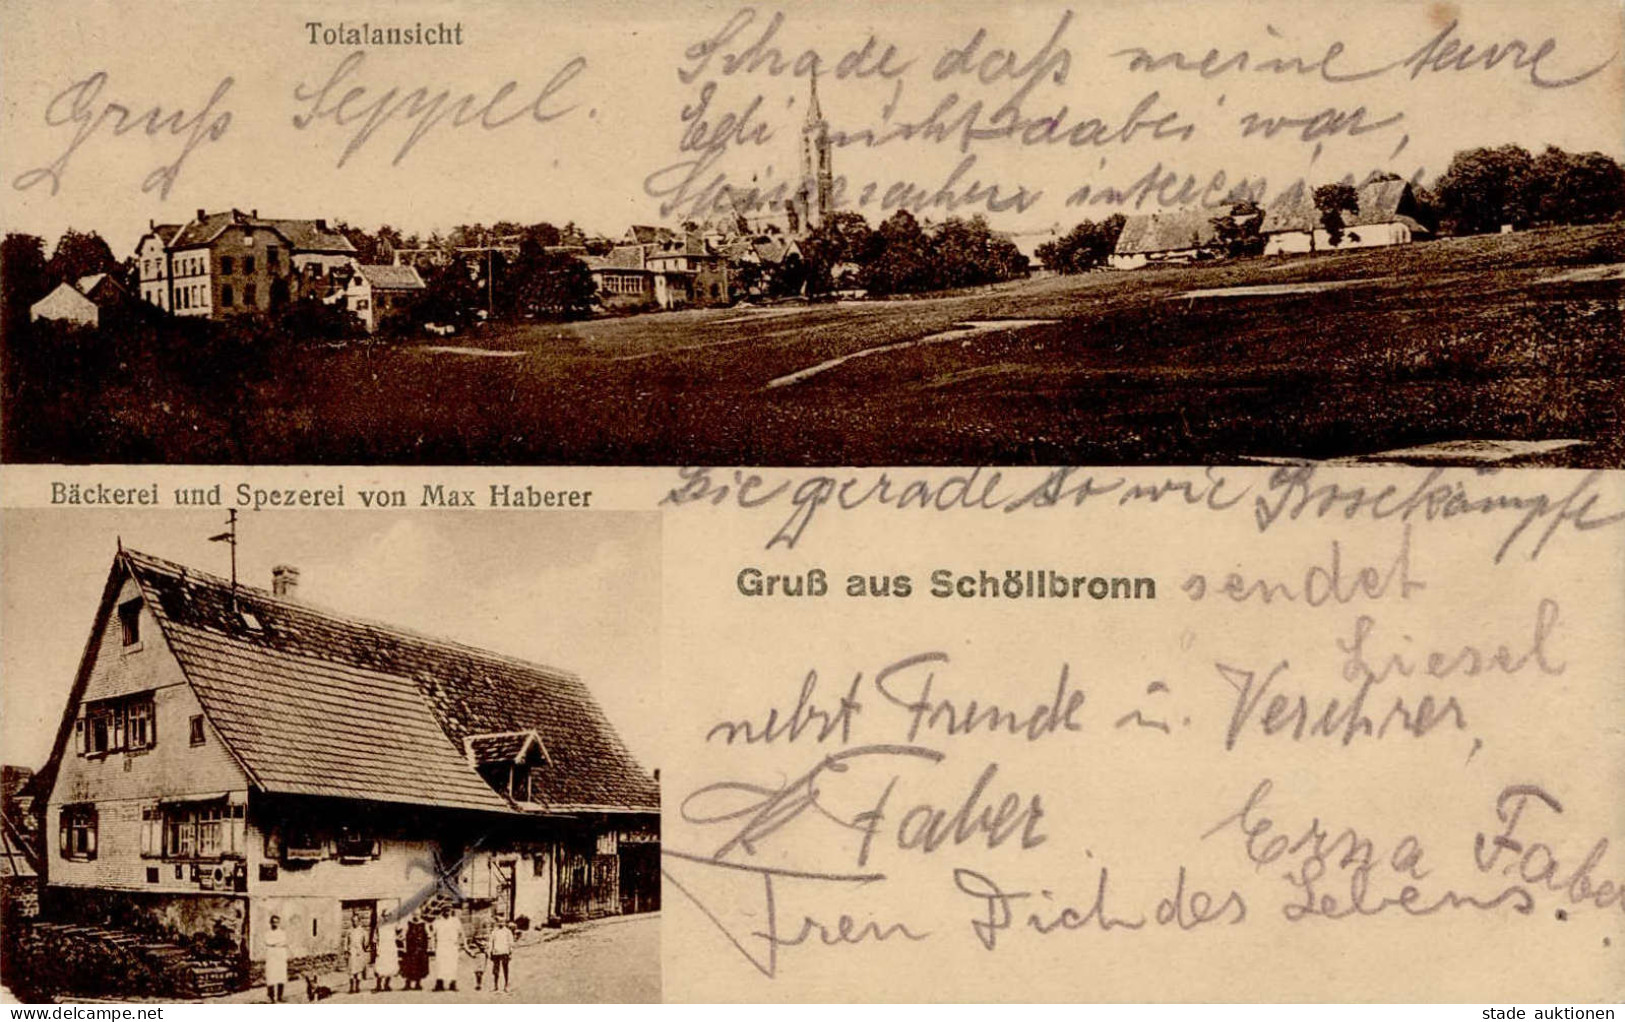 Totalansicht
Gruß Seppel.
Schade, daß meine teure
Edi nicht dabei war,
Bäckerei und Spezerei von Max Haberer
Sie gerade so wie Boxekämpfe
Gruß aus Schöllbronn
sendet
Liesel
nebst Freude u. Verehrer,
Faber
Erna Faber
Freu Dich des Lebens.
delcampe.net
stade auktionen